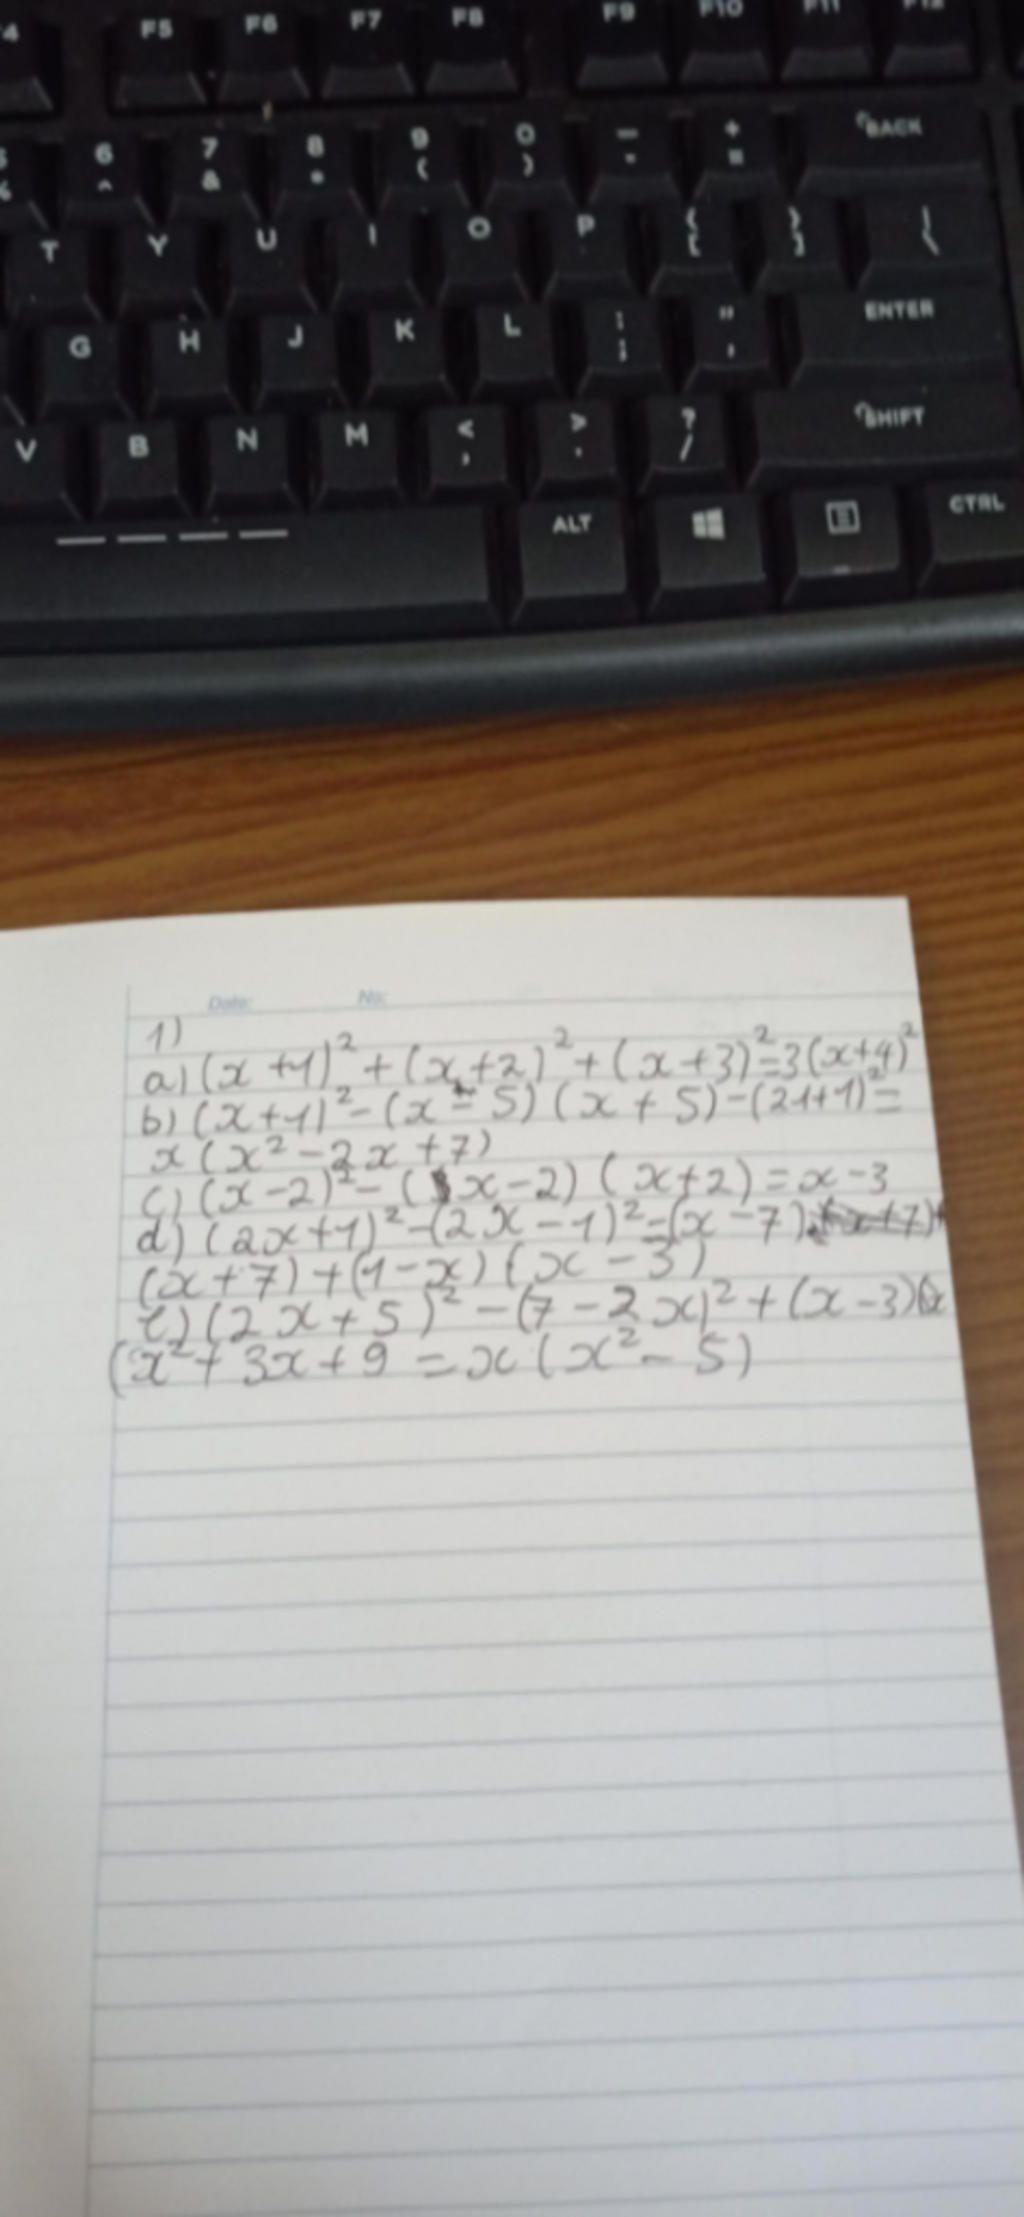 F5 F6 F7 F8 F9 F10 F11 F12
6 ^ 7 & 8 9 ( 0 ) - + = BACK
T Y U I O P { [ } ] | \
G H J K L ; " ' ENTER
V B N M < , > . ? / SHIFT
ALT CTRL
Date: No:
1)
a) (x+1)² + (x+2)² + (x+3)² = 3(x+4)²
b) (x+1)² - (x - 5) (x + 5) - (21+1)² =
x (x² - 2x + 7)
c) (x-2)² - (x-2) (x+2) = x - 3
d) (2x+1)² - (2x-1)² = (x-7)
(x+7) + (1-x) (x - 3)
e) (2x + 5)² - (7 - 2x)² + (x-3)
(x² + 3x + 9 = x (x² - 5)